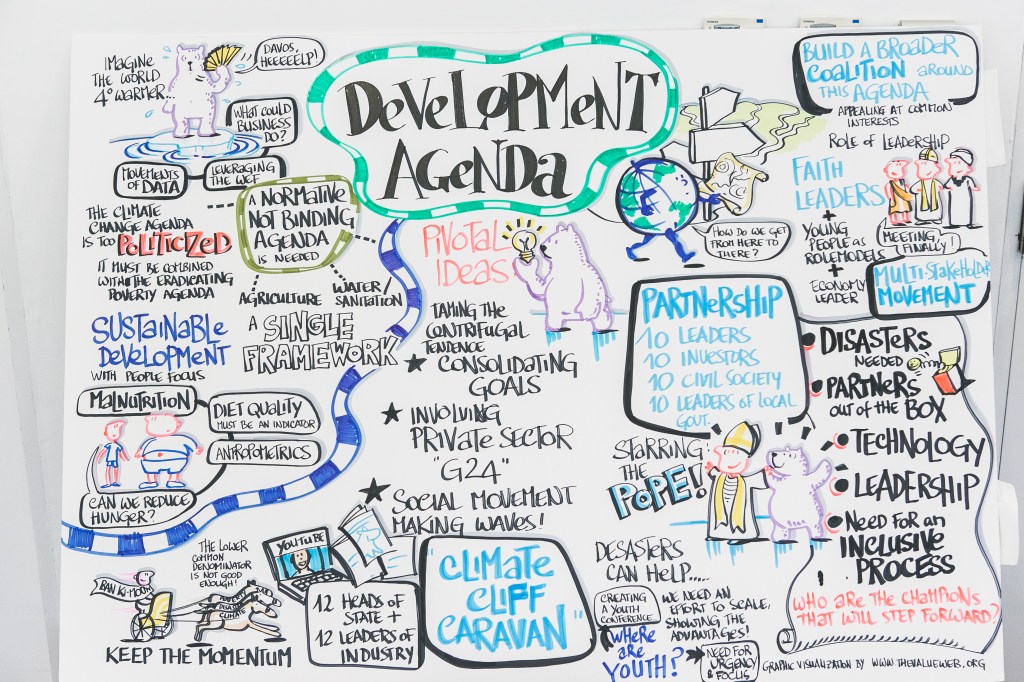 DEVELOPMENT
AGENDA
IMAGINE
THE WORLD
4° WARMER...
DAVOS,
HEEEEELP!
WHAT COULD
BUSINESS
DO?
MOVEMENTS
OF DATA
LEVERAGING
THE WEF
THE CLIMATE
CHANGE AGENDA
IS TOO POLITICIZED
IT MUST BE COMBINED
WITH THE ERADICATING
POVERTY AGENDA
A NORMATIVE
NOT BINDING
AGENDA
IS NEEDED
AGRICULTURE
WATER
SANITATION
SUSTAINABLE
DEVELOPMENT
WITH PEOPLE FOCUS
A SINGLE
FRAMEWORK
MALNUTRITION
DIET QUALITY
MUST BE AN INDICATOR
ANTROPOMETRICS
CAN WE REDUCE
HUNGER?
THE LOWER
COMMON
DENOMINATOR
IS NOT GOOD
ENOUGH!
BAN KI-MOON
KEEP THE MOMENTUM
YOUTUBE
12 HEADS OF
STATE +
12 LEADERS OF
INDUSTRY
PIVOTAL
IDEAS
TAMING THE
CONTRIFUGAL
TENDENCE
★ CONSOLIDATING
GOALS
★ INVOLVING
PRIVATE SECTOR
"G24"
★ SOCIAL MOVEMENT
MAKING WAVES!
"CLIMATE
CLIFF
CARAVAN"
HOW DO WE GET
FROM HERE TO
THERE?
PARTNERSHIP
10 LEADERS
10 INVESTORS
10 CIVIL SOCIETY
10 LEADERS OF LOCAL
GOUT.
STARRING
THE
POPE!
DESASTERS
CAN HELP.....
CREATING
A YOUTH
CONFERENCE
WHERE
ARE
YOUTH?
WE NEED AN
EFFORT TO SCALE,
SHOWING THE
ADVANTAGES!
NEED FOR
URGENCY
& FOCUS
BUILD A BROADER
COALITION AROUND
THIS AGENDA
APPEALING AT COMMON
INTERESTS
ROLE OF LEADERSHIP
FAITH
LEADERS
+
YOUNG
PEOPLE AS
ROLEMODELS
+
ECONOMY
LEADER
MEETING,
FINALLY!
MULTI-STAKEHOLDER
MOVEMENT
DISASTERS
NEEDED
PARTNERS
OUT OF THE BOX
TECHNOLOGY
LEADERSHIP
NEED FOR AN
INCLUSIVE
PROCESS
WHO ARE THE CHAMPIONS
THAT WILL STEP FORWARD?
GRAPHIC VISUALIZATION BY WWW.THEVALUEWEB.ORG